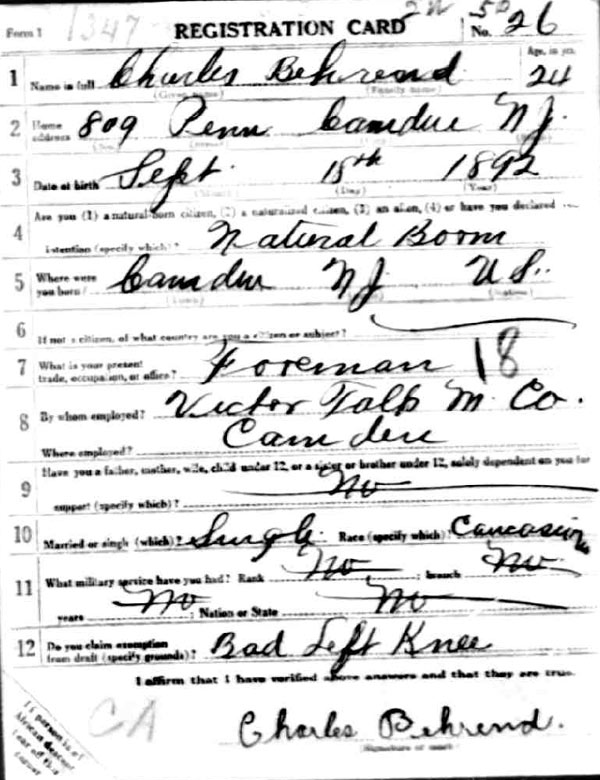 Form 1 1347 REGISTRATION CARD No. 26
Age, in yrs.
1 Name in full Charles Behrend 24
(Given name) (Family name)
2 Home address 809 Penn Camden N.J.
3 Date of birth Sept. 18th 1892
(Month) (Day) (Year)
Are you (1) a natural-born citizen, (2) a naturalized citizen, (3) an alien, (4) or have you declared
4 intention (specify which)? Natural Boorn
5 Where were you born? Camden NJ U.S.
(Town) (Nation)
6 If not a citizen, of what country are you a citizen or subject?
7 What is your present trade, occupation, or office? Foreman 18
8 By whom employed? Victor Talk M. Co.
Where employed? Camden
9 Have you a father, mother, wife, child under 12, or a sister or brother under 12, solely dependent on you for
support (specify which)? No
10 Married or single (which)? Single Race (specify which)? Caucasion
11 What military service have you had? Rank No ; branch No
years No ; Nation or State No
12 Do you claim exemption from draft (specify grounds)? Bad Left Knee
I affirm that I have verified above answers and that they are true.
CA
Charles Behrend.
(Signature or mark)
If person is of
African descent
tear off this
corner